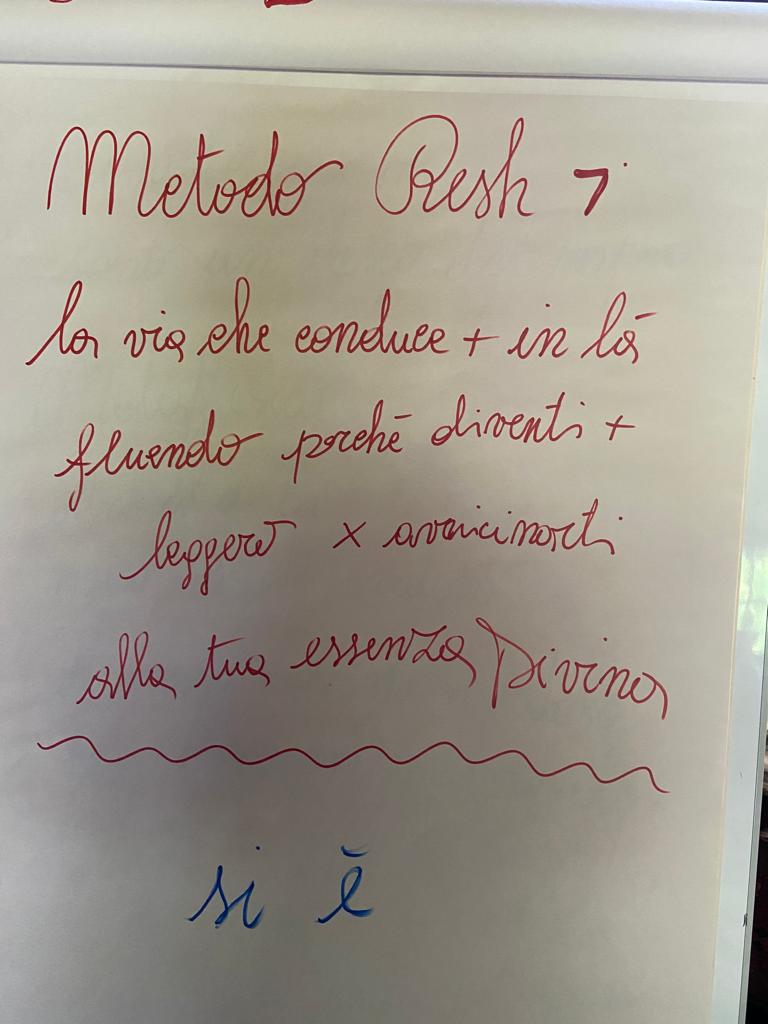 Metodo Resh ר
la via che conduce + in là
fluendo perché diventi +
leggero x avvicinarti
alla tua essenza Divina
si è